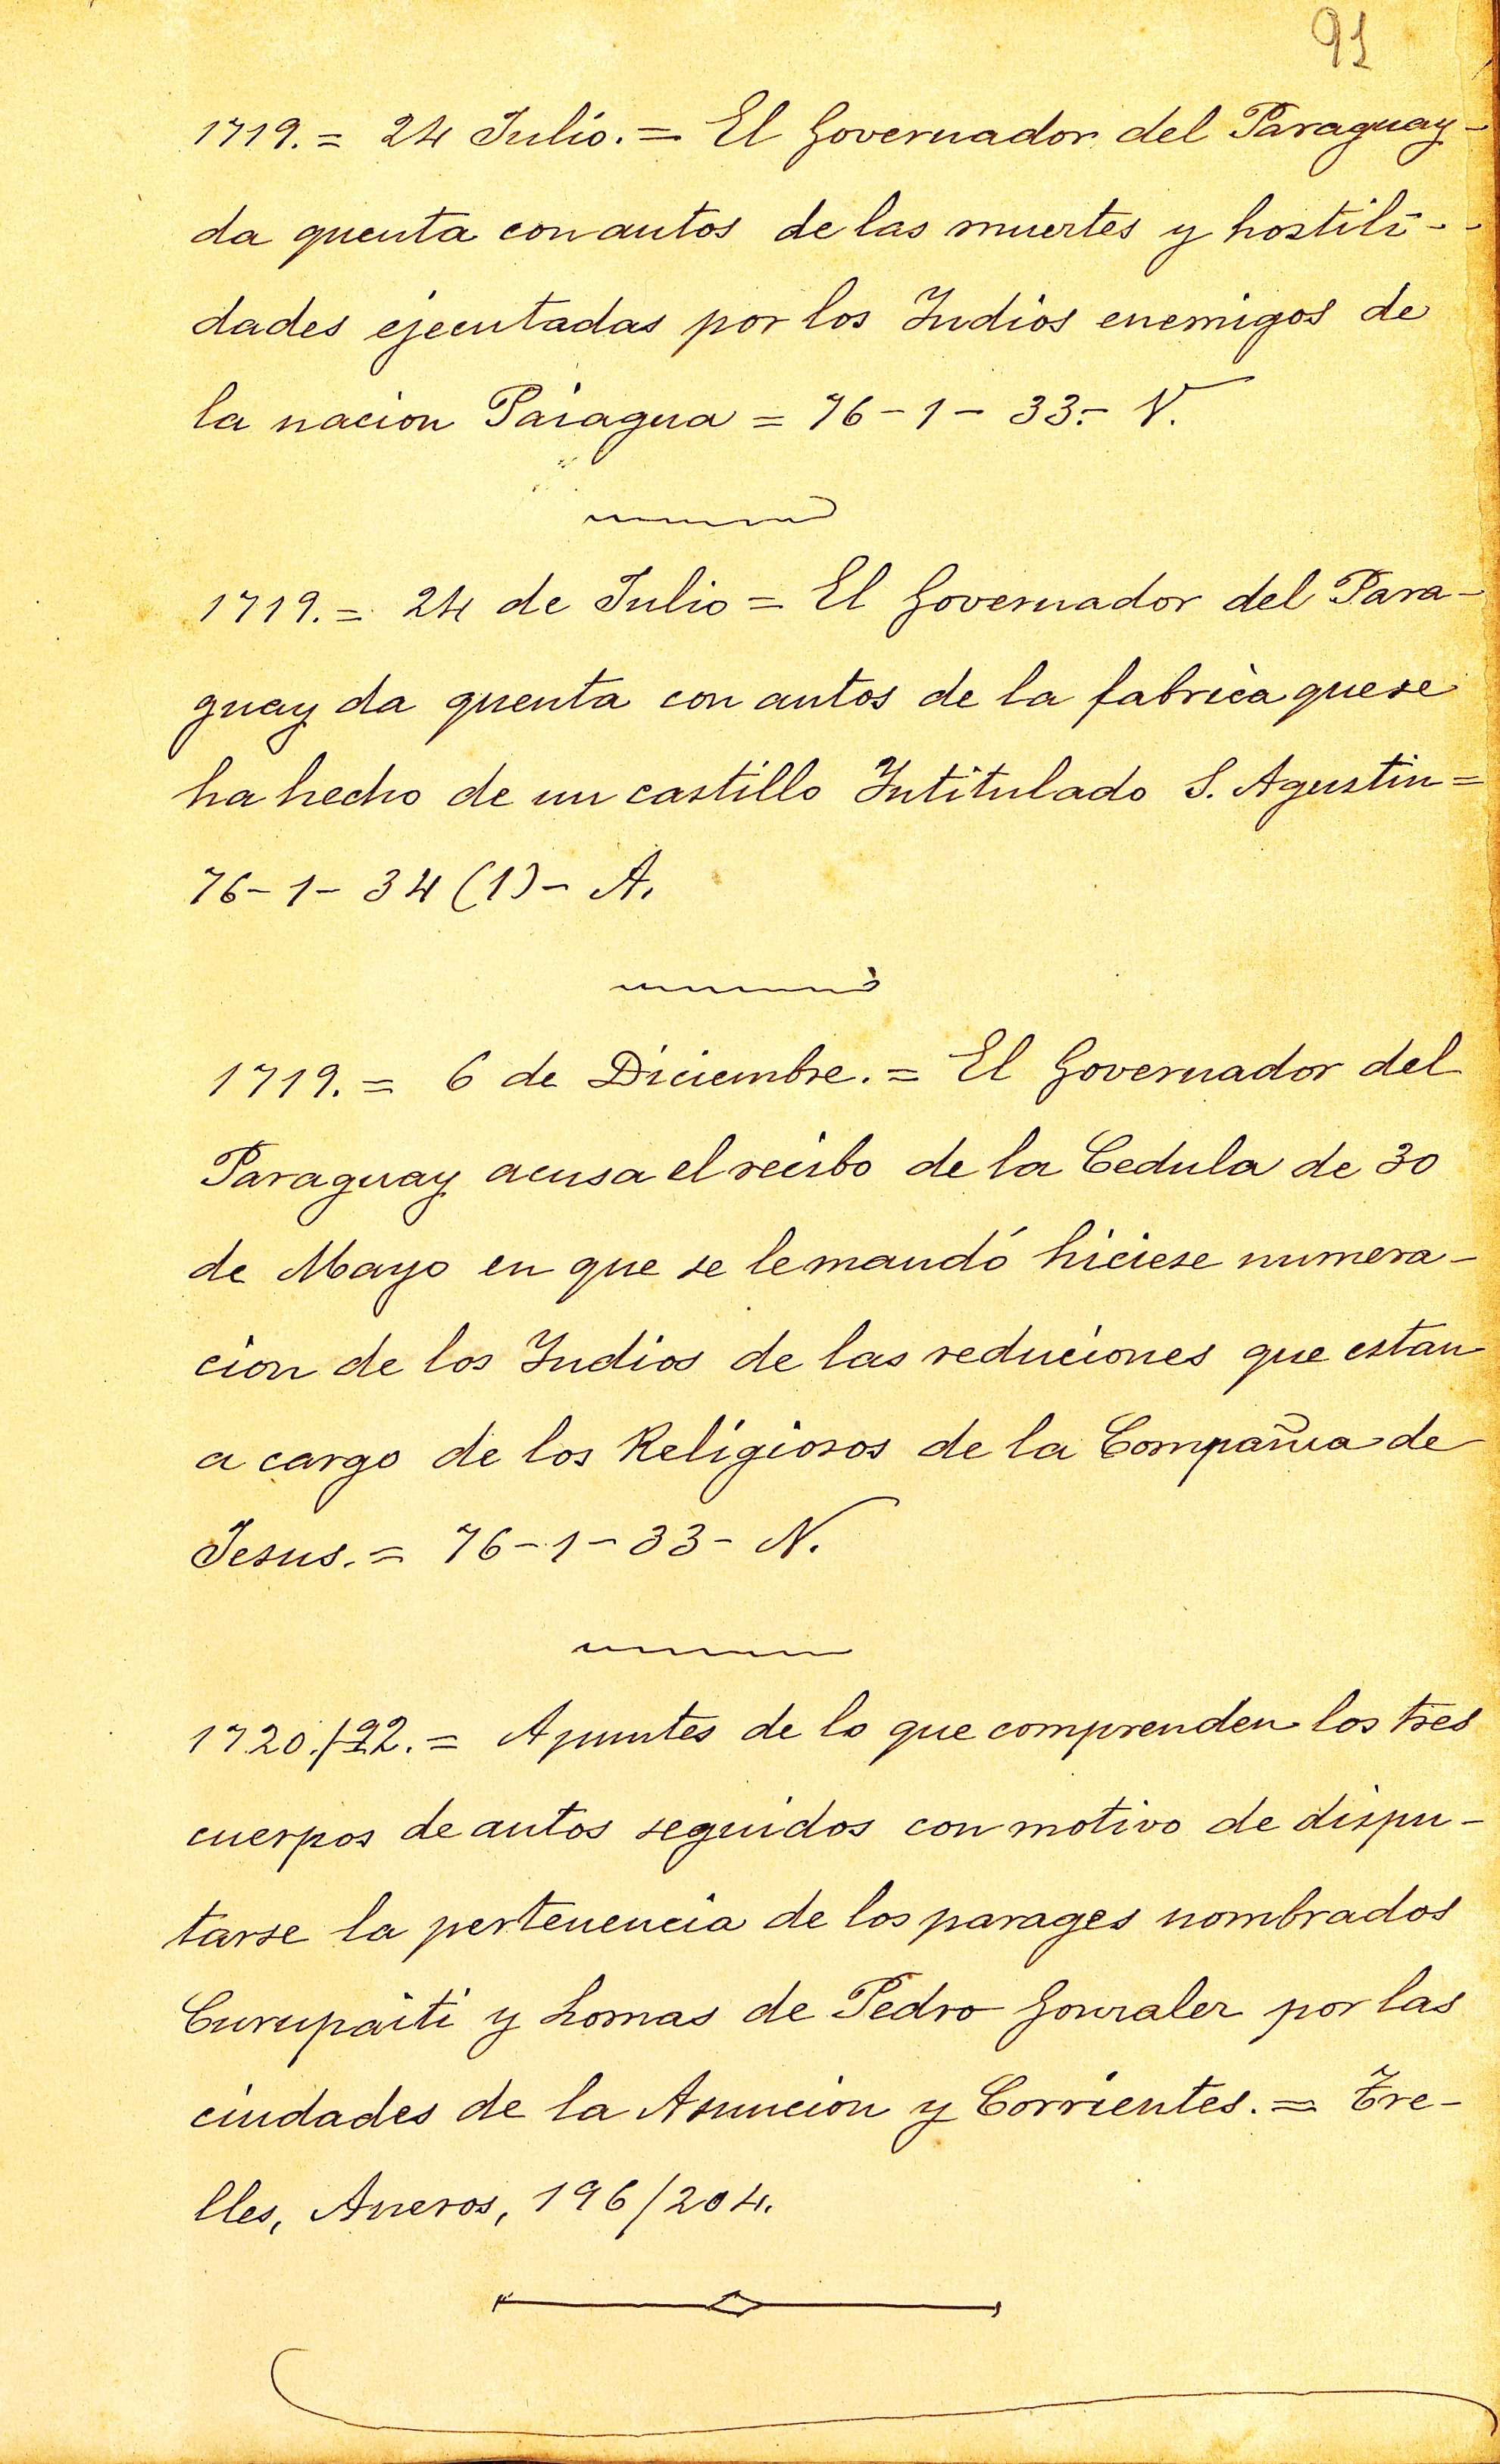 91
1719. = 24 Julio. = El Governador del Paraguay -
da quenta con autos de las muertes y hostili- -
dades ejecutadas por los Indios enemigos de
la nacion Paiagua = 76 - 1 - 33. - N.
1719. = 24 de Julio = El Governador del Para-
guay da quenta con autos de la fabrica que se
ha hecho de un castillo Intitulado S. Agustin =
76 - 1 - 34 (1) - A.
1719. = 6 de Diciembre. = El Governador del
Paraguay acusa el recibo de la Cedula de 30
de Mayo en que se le mandó hiciese numera-
cion de los Indios de las reduciones que estan
a cargo de los Religiosos de la Compañia de
Jesus. = 76 - 1 - 33 - N.
1720./92. = Apuntes de lo que comprenden los tres
cuerpos de autos seguidos con motivo de dispu-
tarse la pertenencia de los parages nombrados
Curupaiti y Lomas de Pedro Gonzalez por las
ciudades de la Asuncion y Corrientes. = Tre-
lles, Anexos, 196/204.